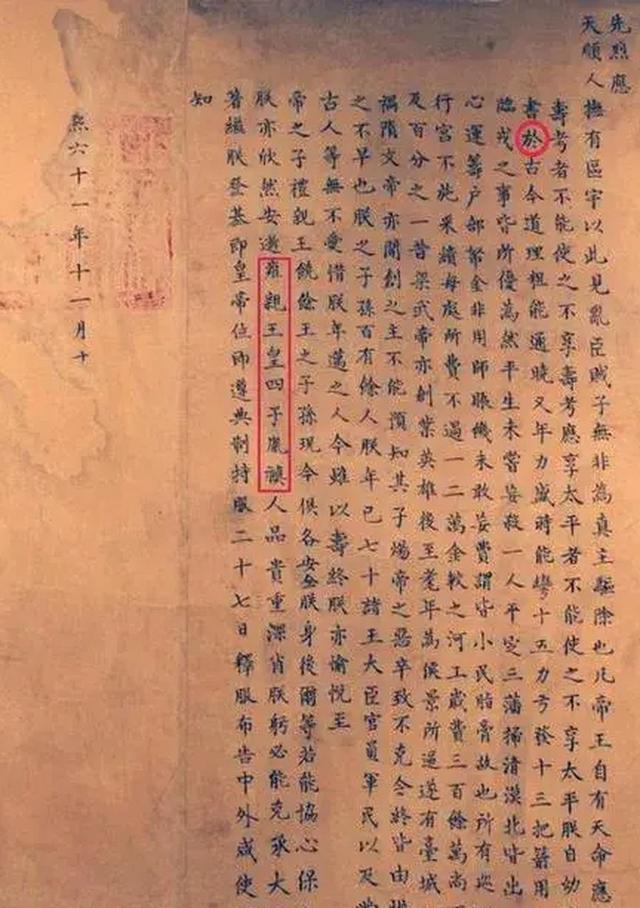 先烈應
天順人撫有區宇以此見亂臣賊子無非為真主驅除也凡帝王自有天命應
壽考者不能使之不享壽考應享太平者不能使之不享太平朕自幼
書於古今道理粗能通曉又年力盛時能彎十五力弓發十三把箭用
臨戎之事皆所優為然平生未嘗妄殺一人平定三藩掃清漠北皆出
心運籌戶部帑金非用師賑饑未敢妄費謂皆小民脂膏故也所有巡
行宮不施采繢每處所費不過一二萬金較之河工歲費三百餘萬尚
及百分之一昔梁武帝亦創業英雄後至耄年為侯景所逼遂有臺城
禍隋文帝亦開創之主不能預知其子煬帝之惡卒致不克令終皆由
之不早也朕之子孫百有餘人朕年已七十諸王大臣官員軍民以及
古人等無不愛惜朕年邁之人今雖以壽終朕亦愉悅至
帝之子禮親王饒餘王之子孫現今俱各安全朕身後爾等若能協心保
朕亦欣然安逝雍親王皇四子胤禛人品貴重深肖朕躬必能克承大
著繼朕登基即皇帝位即遵典制持服二十七日釋服布告中外咸使
知
熙六十一年十一月十